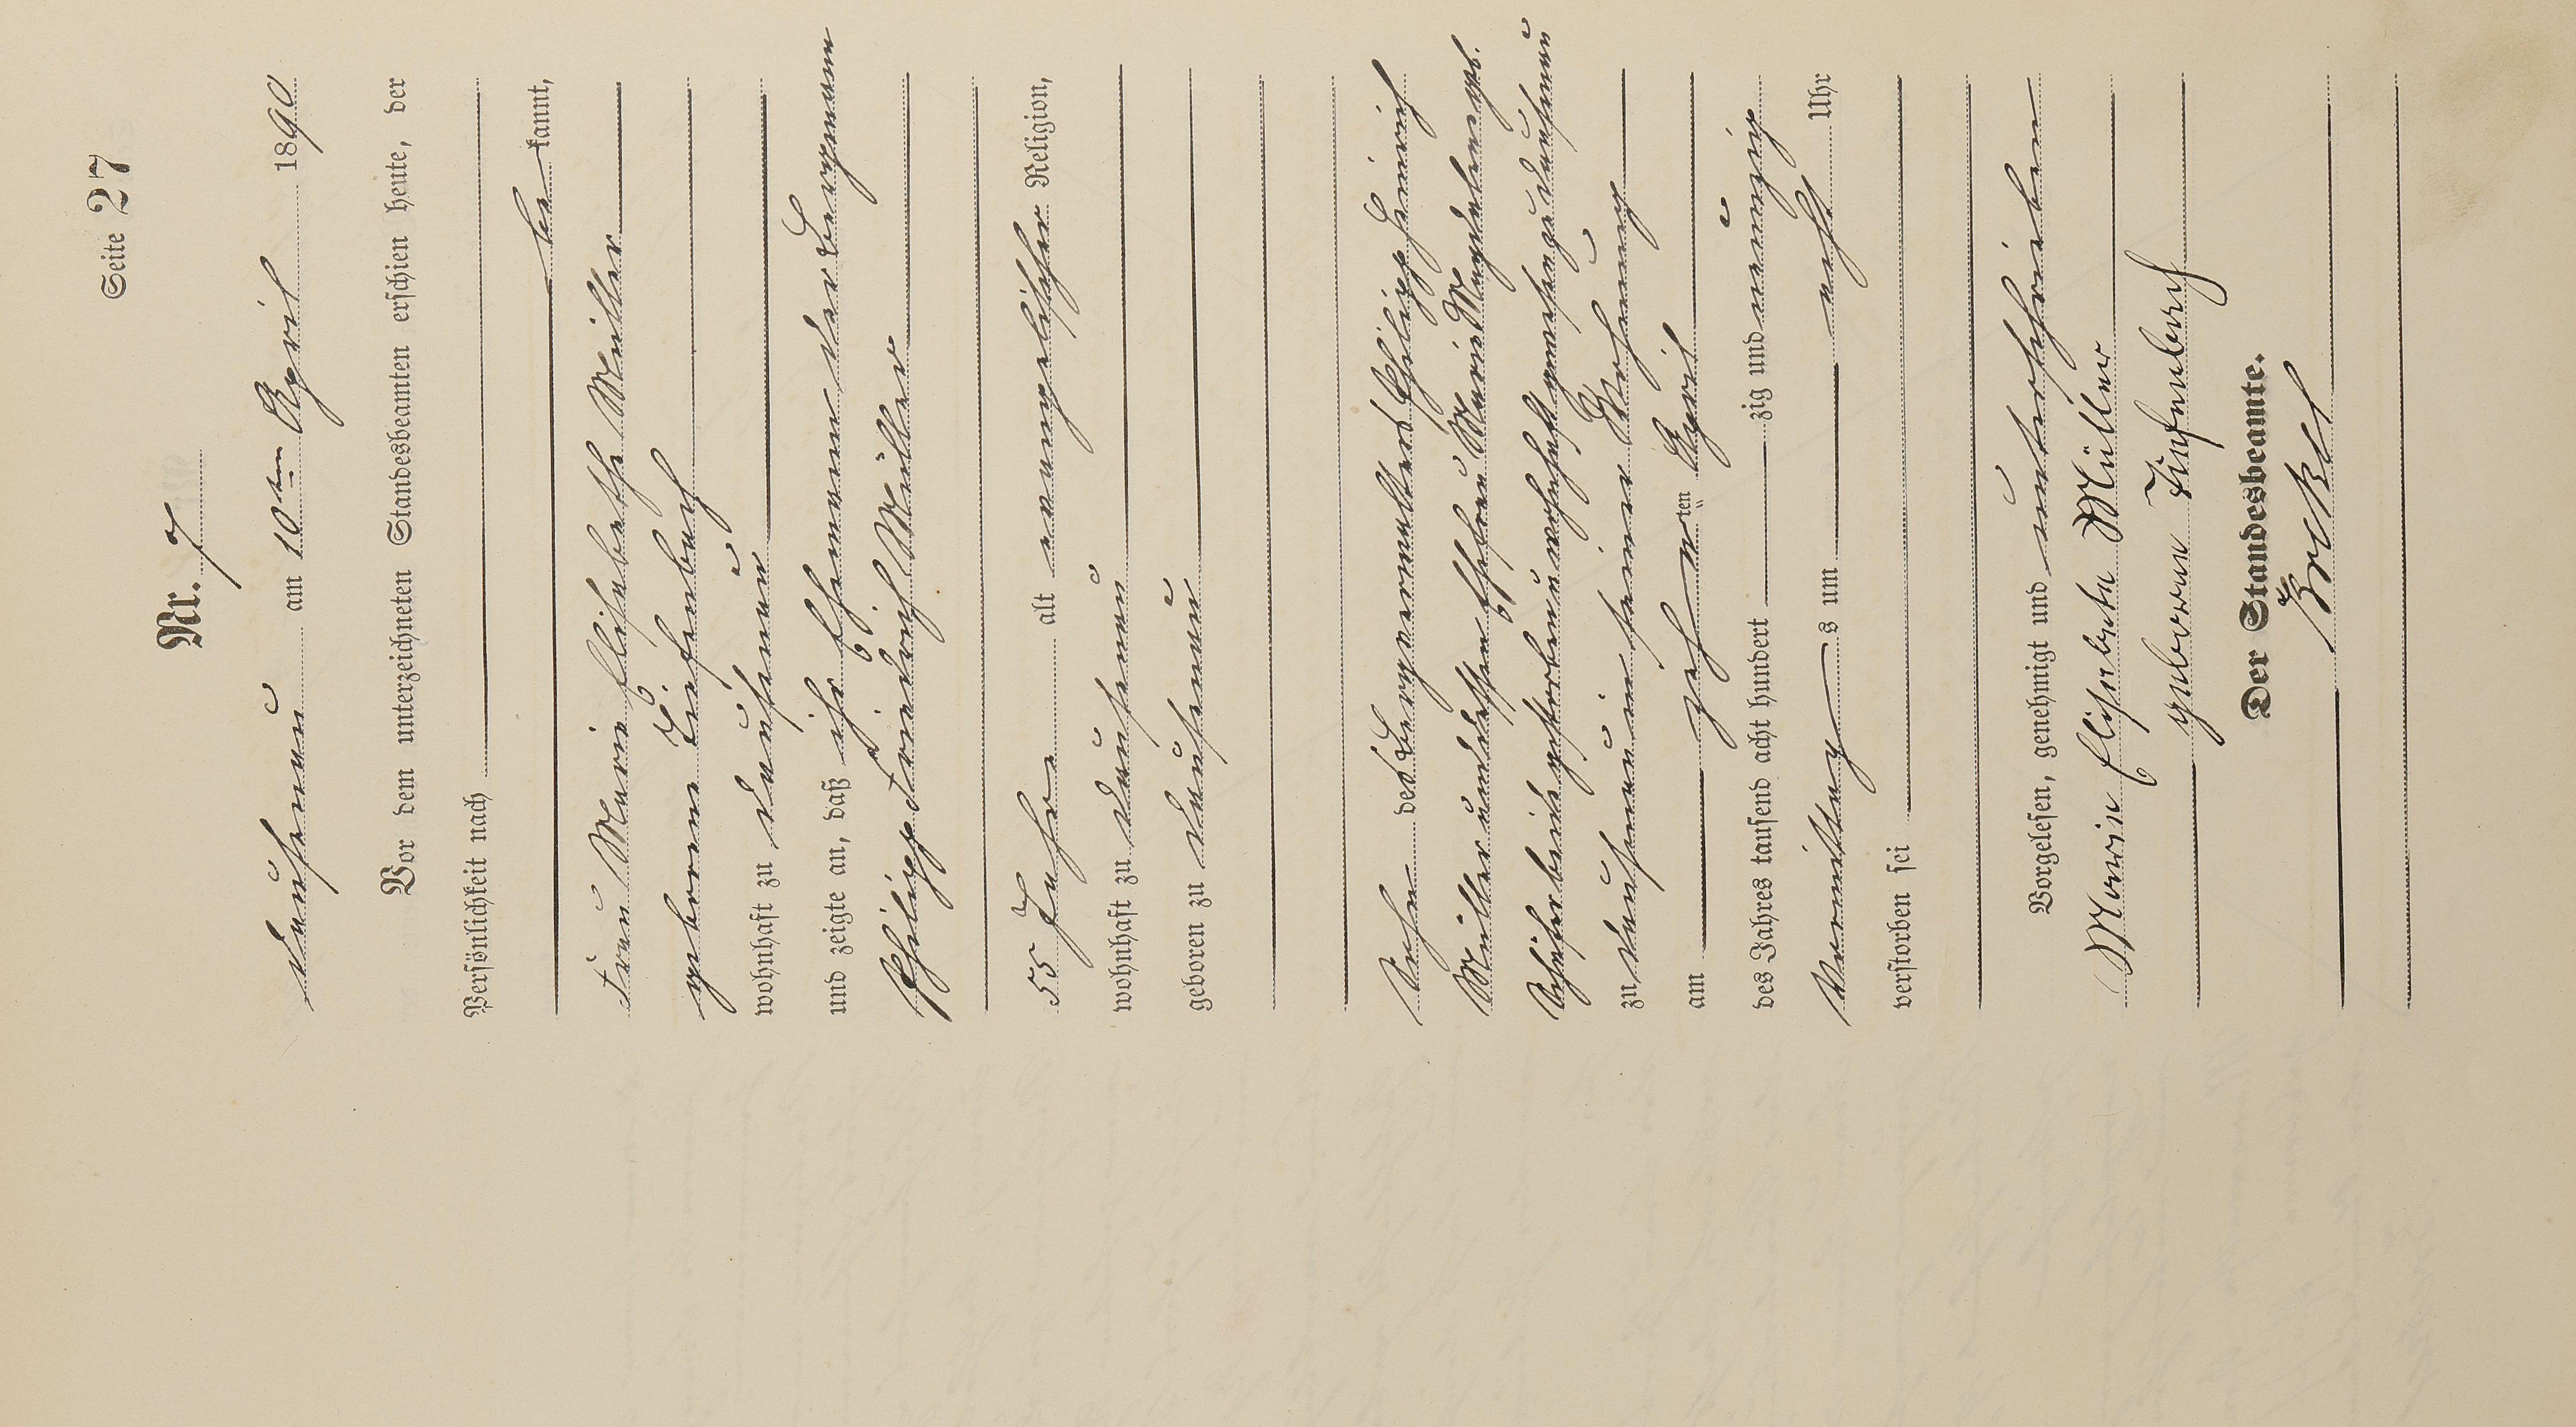 Seite 27
Nr. 7
Dausenau am 10ten April 1890
Vor dem unterzeichneten Standesbeamten erschien heute, der
Persönlichkeit nach
be kannt,
Frau Marie Elisabethe Müller
geborene Tiefenbach
wohnhaft zu Dausenau
und zeigte an, daß ihr Ehemann der Bergmann
Philipp Friedrich Müller
55 Jahre alt evangelischer Religion,
wohnhaft zu Dausenau
geboren zu Dausenau
Sohn des Bergverwalters Philipp Heinrich
Müller und dessen Ehefrau Marie Magdalene geb.
beide gestorben u wohnhaft gewesen zu Dausenau
zu Dausenau in seiner Wohnung
am zehn ten April
des Jahres tausend acht hundert zig und neunzig
Vormittag s um acht Uhr
verstorben sei
Vorgelesen, genehmigt und unterschrieben
Marie Elisabethe Müller
geborene Tiefenbach
Der Standesbeamte.